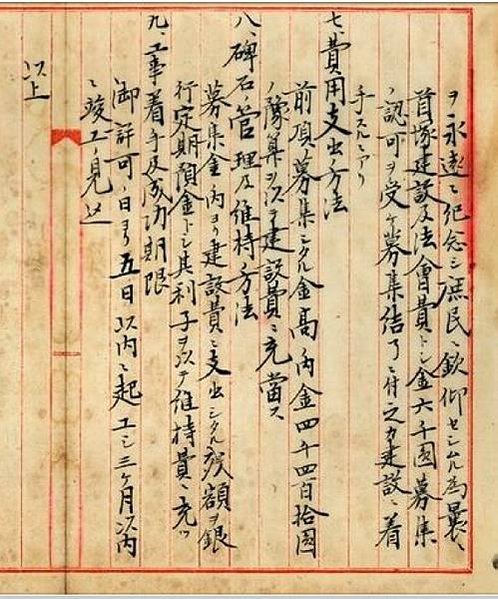 ヲ永遠ニ紀念シ庶民ニ欽仰セシムル為曩ニ
首塚建設及法會費トシ金六千圓募集
ノ認可ヲ受ケ募集結了ニ付之カ建設ニ着
手スルニアリ
七、費用支出ノ方法
前項募集シタル金高ノ内金四千四百拾圓
ノ豫算ヲ以テ建設費ニ充當ス
八、碑石管理及維持ノ方法
募集金ノ内ヨリ建設費ニ支出シタル残額ヲ銀
行定期預金トシ其利子ヲ以テ維持費ニ充ツ
九、工事着手及成功期限
御許可ノ日ヨリ五日以内ニ起工シ三ヶ月以内
ニ竣工見込
以上